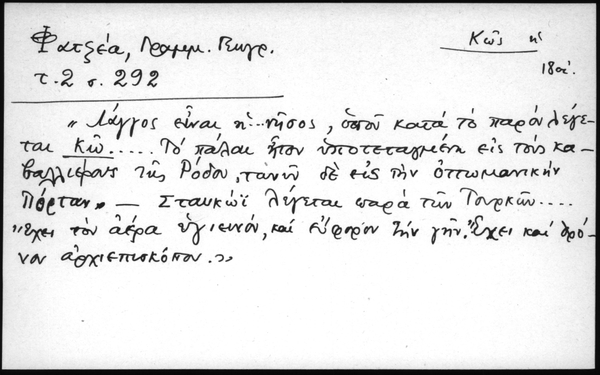 Φατζέα, Γραμμ. Γεωγρ.
Κῶς ἡ
τ. 2 σ. 292
18ος.
"Λάγγος εἶναι ἡ...νῆσος, ὁποῦ κατά τό παρόν λέγε-
ται Κῶ..... Τό πάλαι ἦτον ὑποτεταγμένη εἰς τούς κα-
βαλλιέρους τῆς Ρόδου, τανῦν δέ εἰς τήν ὀττωμανικήν
Πόρταν» — Σταυκώϊ λέγεται παρά τῶν Τουρκῶν....
"Ἔχει τόν ἀέρα ὑγιεινόν, καί εὔφορον τήν γῆν. Ἔχει καί θρό-
νον ἀρχιεπισκόπου.»